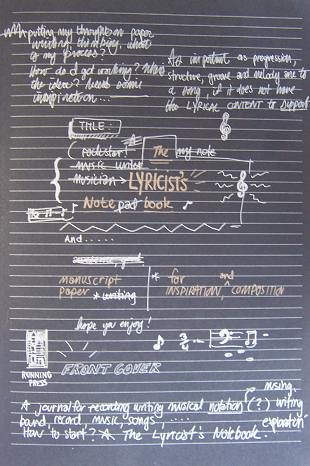 putting my thoughts on paper
writing, thinking, what
is my process?
How do I get writing?
the ideas? need some
inspiration...
As important as progression,
structure, groove and melody are to
a song, if it does not have
the LYRICAL CONTENT to support
TITLE:
rockstar! The my note
music writer
musician LYRICIST'S
Note pad book
And.....
manuscript
paper
* for and
INSPIRATION, COMPOSITION
hope you enjoy!
3/4
RUNNING
PRESS
FRONT COVER
musing,
A journal for recording writing musical notation (?) writing
band, record, music, songs, .... exploration
How to start? A The Lyricist's Notebook.